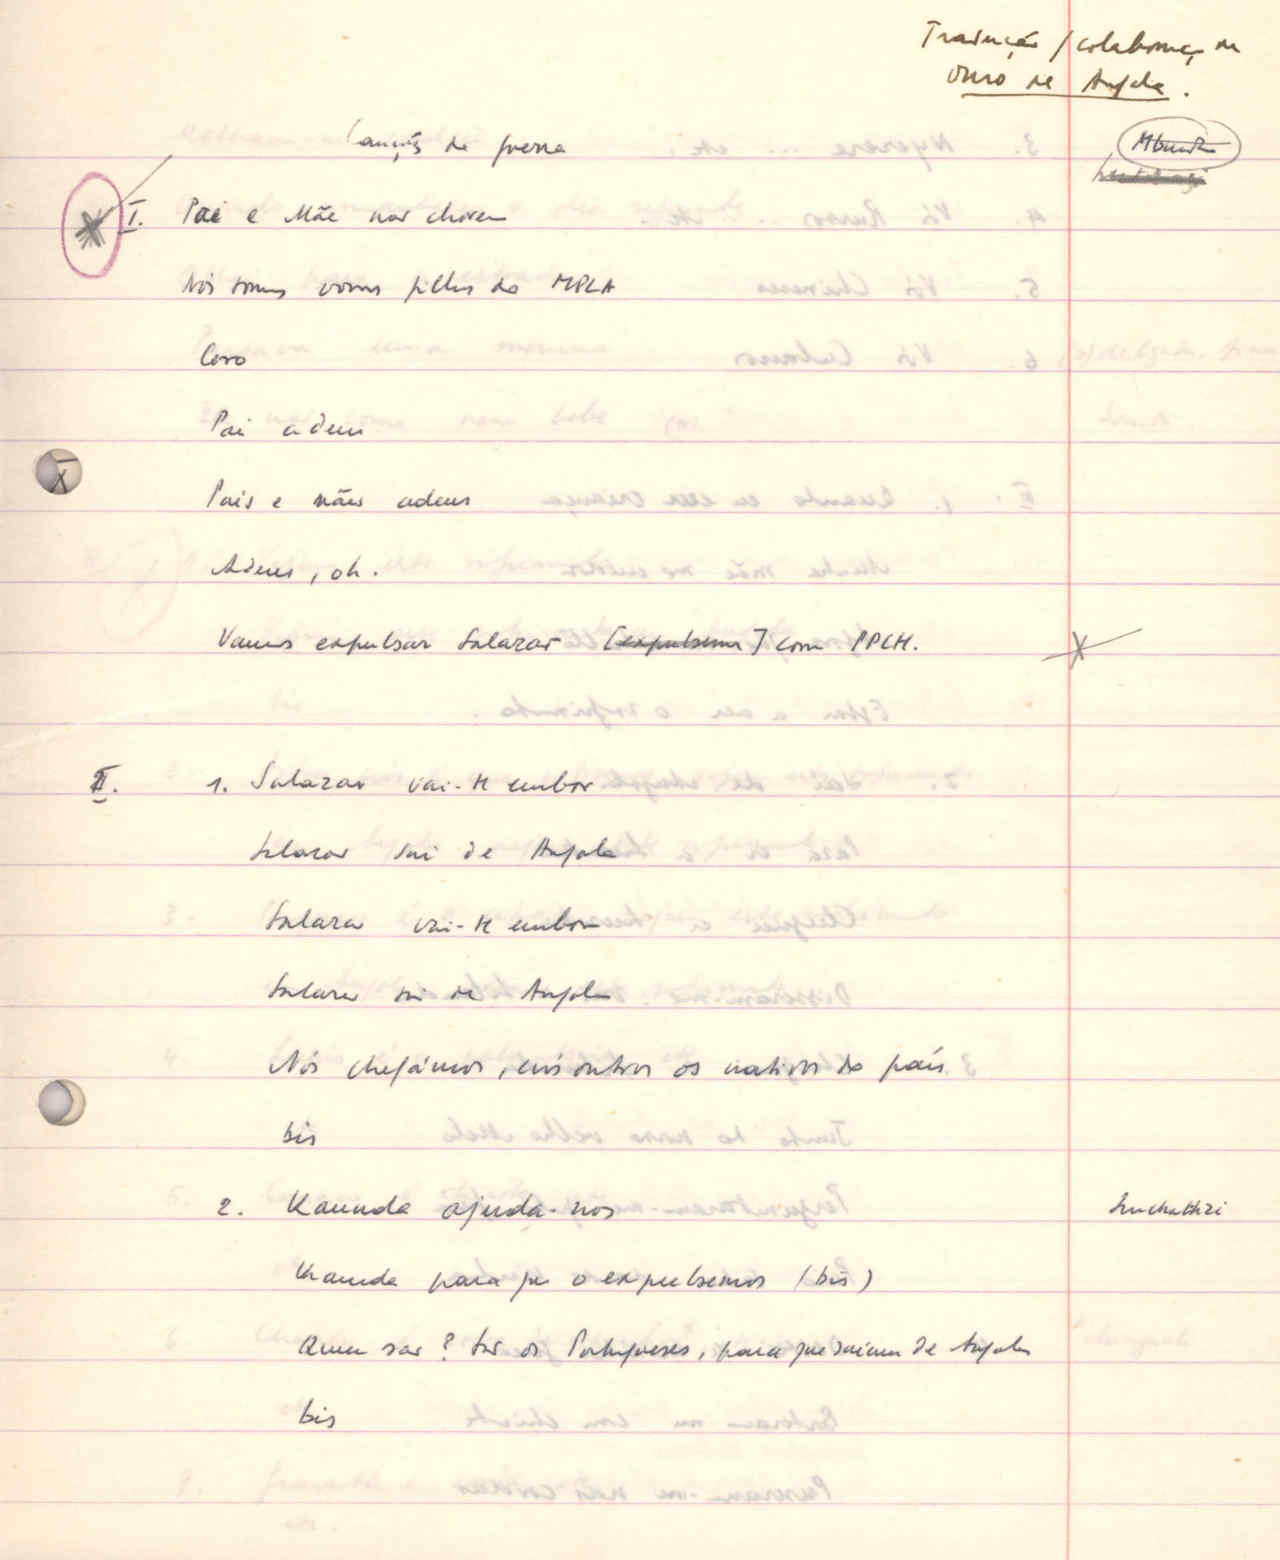 Tradução / colaboração de
Ouro de Angola.
Canções de guerra
Mbunda
I. Pai e Mãe não chorem
Nós somos vossos filhos do MPLA
Coro
Pai adeus
Pais e mães adeus
Adeus, oh.
Vamos expulsar Salazar [expulsemos] com PPCH.
II. 1. Salazar vai-te embora
Salazar sai de Angola
Salazar vai-te embora
Salazar sai de Angola
Nós chegámos, nós outros os nativos do país
bis
2. Kaunda ajuda-nos
Kaunda para que o expulsemos (bis)
Quem são? São os Portugueses, para que saiam de Angola
bis